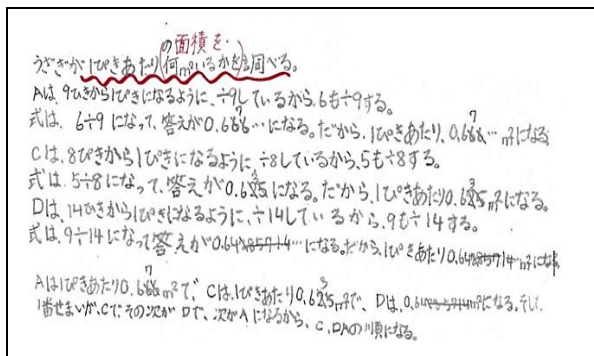 の面積を・
うさぎが1ぴきあたり何m²いるかを調べる。
Aは、9ひきから1ぴきになるように、÷9しているから、6も÷9する。
7 7
式は、6÷9になって、答えが0.666…になる。だから、1ぴきあたり、0.666…m²になる
Cは、8ぴきから1ぴきになるように、÷8しているから、5も÷8する。
3 3
式は、5÷8になって、答えが0.625になる。だから、1ぴきあたり0.625m²になる。
Dは、14ひきから1ぴきになるように、÷14しているから、9も÷14する。
式は、9÷14になって答えが0.64285714…になる。だから、1ぴきあたり0.64285714…m²になる。
7 3
Aは1ぴきあたり0.666m²で、Cは、1ぴきあたり0.625m²で、Dは、0.64285714m²になる。そして、
1番せまいが、Cで、その次がDで、次がAになるから、C、DAの順になる。